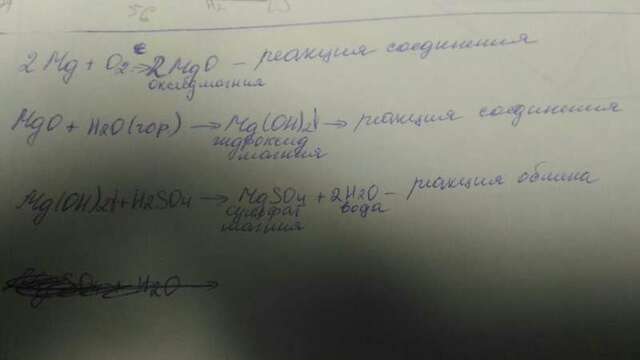 2Mg + O2 → 2MgO – реакция соединения
оксид магния
MgO + H2O (гор) → Mg(OH)2↓ → реакция соединения
гидроксид
магния
Mg(OH)2↓ + H2SO4 → MgSO4 + 2H2O – реакция обмена
сульфат вода
магния